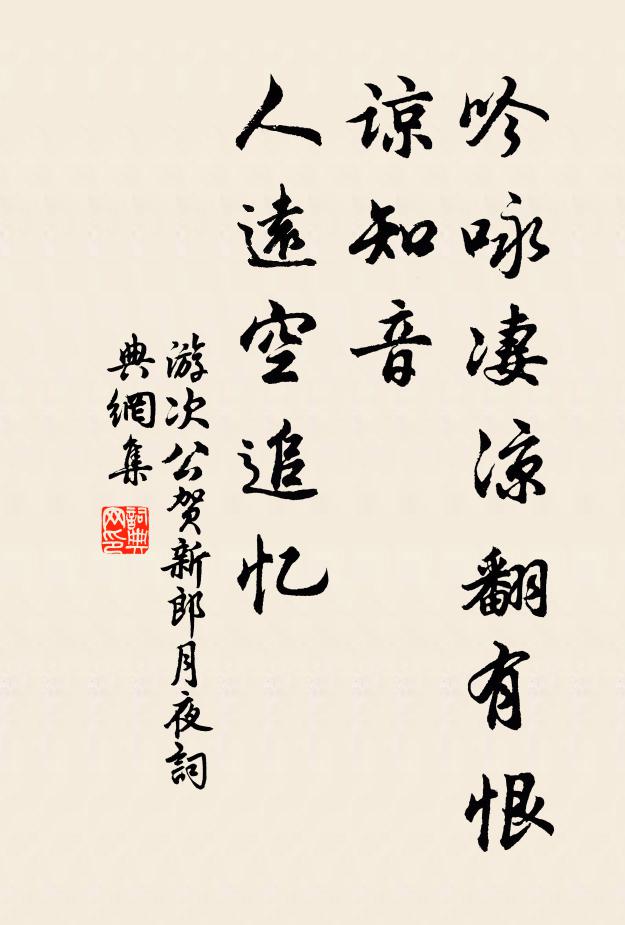 吟咏凄凉翻有恨
谅知音
人遠空追忆
游次公贺新郎月夜詞
典網集
詞典
网印